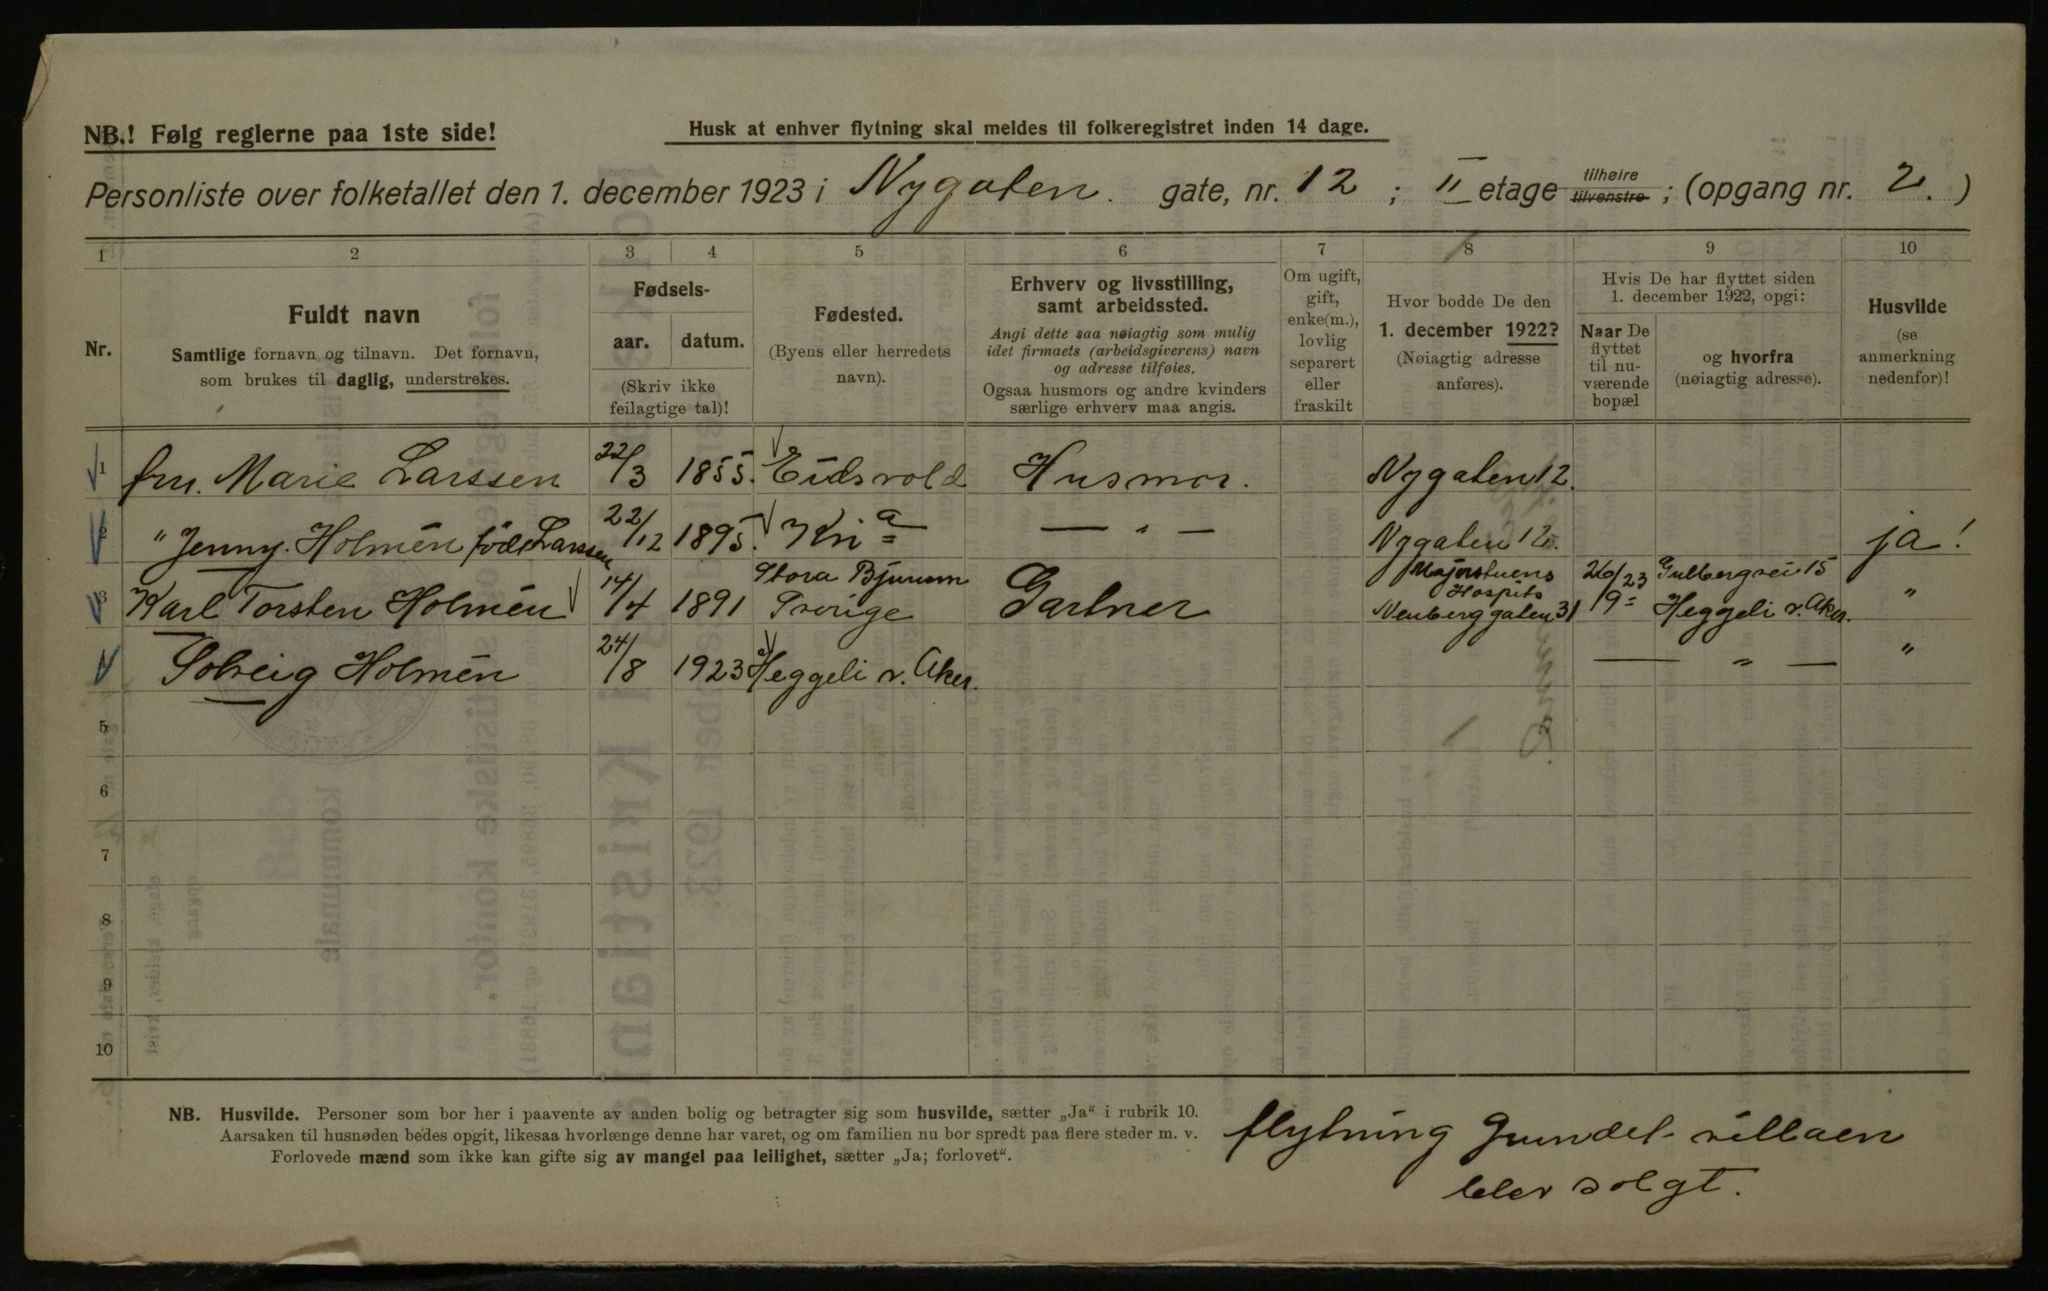 NB.! Følg reglerne paa 1ste side!
Husk at enhver flytning skal meldes til folkeregistret inden 14 dage.
Personliste over folketallet den 1. december 1923 i Nygaten. gate, nr. 12 ; II etage tilhøire tilvenstre ; (opgang nr. 2. )
1 2 3 4 5 6 7 8 9 10
Nr.
Fuldt navn
Samtlige fornavn og tilnavn. Det fornavn,
som brukes til daglig, understrekes.
Fødsels-
aar. datum.
(Skriv ikke
feilagtige tal)!
Fødested.
(Byens eller herredets
navn).
Erhverv og livsstilling,
samt arbeidssted.
Angi dette saa nøiagtig som mulig
idet firmaets (arbeidsgiverens) navn
og adresse tilføies.
Ogsaa husmors og andre kvinders
særlige erhverv maa angis.
Om ugift,
gift,
enke(m.),
lovlig
separert
eller
fraskilt
Hvor bodde De den
1. december 1922?
(Nøiagtig adresse
anføres).
Hvis De har flyttet siden
1. december 1922, opgi:
Naar De
flyttet
til nu-
værende
bopæl
og hvorfra
(nøiagtig adresse).
Husvilde
(se
anmerkning
nedenfor)!
1 fru. Marie Larssen 22/3 1855. Eidsvold Husmor. Nygaten 12.
2 " Jenny. Holmén född Larssen 22/12 1895. Kri a — " — Nygaten 12. ja!
3 Karl Torsten Holmén 14/4 1891 Stora Bjurum Sverige Gartner Majorstuens Hospits Neuberggaten 31 26/9 23 Gulbergvei 15 Heggeli v. Aker. "
4 Solveig Holmén 24/8 1923 Heggeli v. Aker. — " — "
5
6
7
8
9
10
NB. Husvilde. Personer som bor her i paavente av anden bolig og betragter sig som husvilde, sætter „Ja" i rubrik 10.
Aarsaken til husnøden bedes opgit, likesaa hvorlænge denne har varet, og om familien nu bor spredt paa flere steder m. v.
Forlovede mænd som ikke kan gifte sig av mangel paa leilighet, sætter „Ja; forlovet".
flytning Grundet villaen
blev solgt.